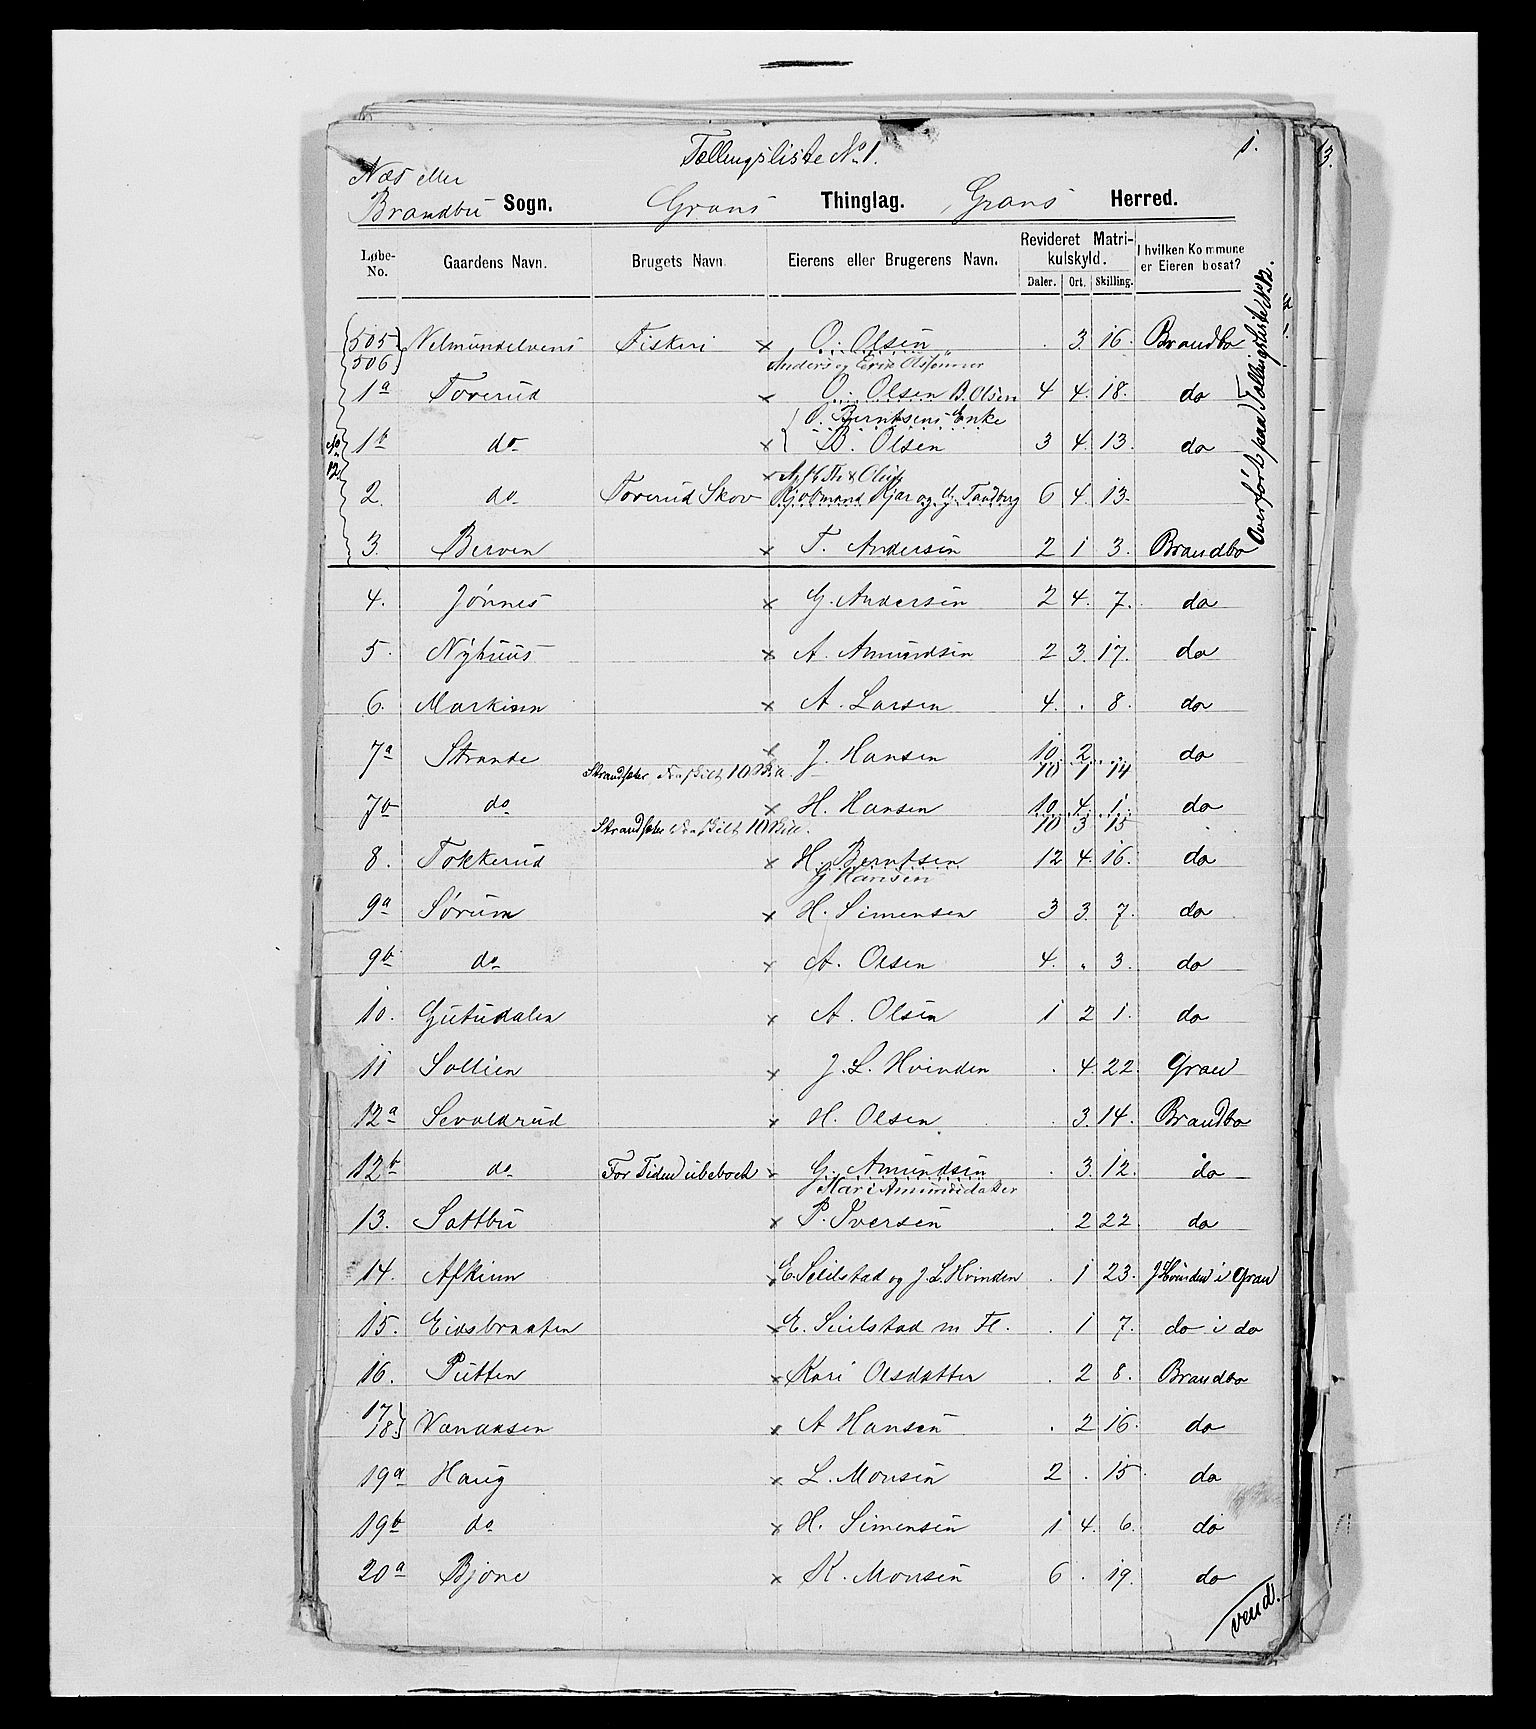 Tællingsliste No 1.
1.
3.
Næs eller
Brandbu Sogn. Grans Thinglag. Grans Herred.
Løbe-No. Gaardens Navn. Brugets Navn. Eierens eller Brugerens Navn. Revideret Matrikulskyld. I hvilken Kommune er Eieren bosat?
Daler. Ort. Skilling.
505 Velmundelvens Fiskeri x O. Olsen . 3. 16. Brandbo
506 Anders og Erik Olssønner
1a Toverud x O. Olsen B. Olsen 4 4. 18. do
O. Berntsens Enke
1b do x B. Olsen 3 4. 13. do
No 12
2. do Toverud Skov x Kjøbmand Kjær og G. Tandberg 6 4. 13.
3. Berven x T. Andersen 2 1 3. Brandbo
Overført paa Tællingsliste No 12.
4. Jønnes x G. Andersen 2 4. 7. do
5. Nyhuus x A. Amundsen 2 3. 17. do
6. Markium x A. Larsen 4. . 8. do
7a Strande x J. Hansen 10 2 . do
Strandsæter 10 1 14
7b do x H. Hansen 10 4. 1. do
Strandsæter 10 3 15
8. Tokkerud x H. Berntsen 12 4. 16. do
G Hansen
9a Sørum x H. Simensen 3 3. 7. do
9b do x A. Olsen 4. . 3. do
10. Gutudalen x A. Olsen 1 2 1. do
11 Sollien x J. L. Hvinden . 4. 22. Gran
12a Sevaldrud x H. Olsen . 3. 14. Brandbo
12b do For Tiden ubeboet x G. Amundsen . 3. 12. do
Mari Amundsdatter
13. Sattbu x P. Iversen . 2 22 do
14. Afkium x E. Seilstad og J. L. Hvinden . 1 23. J Hvinden i Gran
15. Eidsbraaten x E. Seilstad m Fl. . 1 7. do i do
16. Putten x Kari Olsdatter . 2 8. Brandbo
17
18 Vænaasen x A Hansen . 2 16. do
19a Haug x L. Monsen 2 . 15. do
19b do x H. Simensen 1 4. 6. do
20a Bjone x K. Monsen 6 . 19. do
vend.